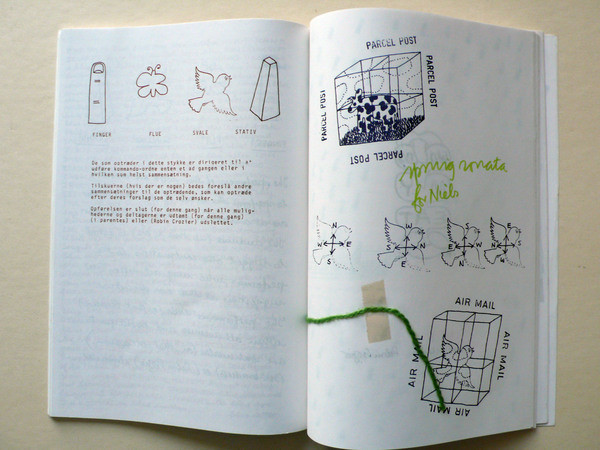 FINGER
FLUE
SVALE
STATIV
De som optræder i dette stykke er dirigeret til at
udføre kommando-ordne enten et ad gangen eller i
hvilken som helst sammensætning.
Tilskuerne (hvis der er nogen) bedes foreslå andre
sammensætninger til de optrædende, som kan optræde
efter deres forslag som de selv ønsker.
Opførelsen er slut (for denne gang) når alle mulig-
hederne og deltagerne er udtømt (for denne gang)
(i parentes) eller (Robin Crozier) udslettet.
PARCEL POST
PARCEL POST
PARCEL POST
PARCEL POST
spring sonata
for Niels
N
W E
S
N
W
E
S
N
W
S E
E
N
W
S
AIR MAIL
AIR MAIL
AIR MAIL
AIR MAIL